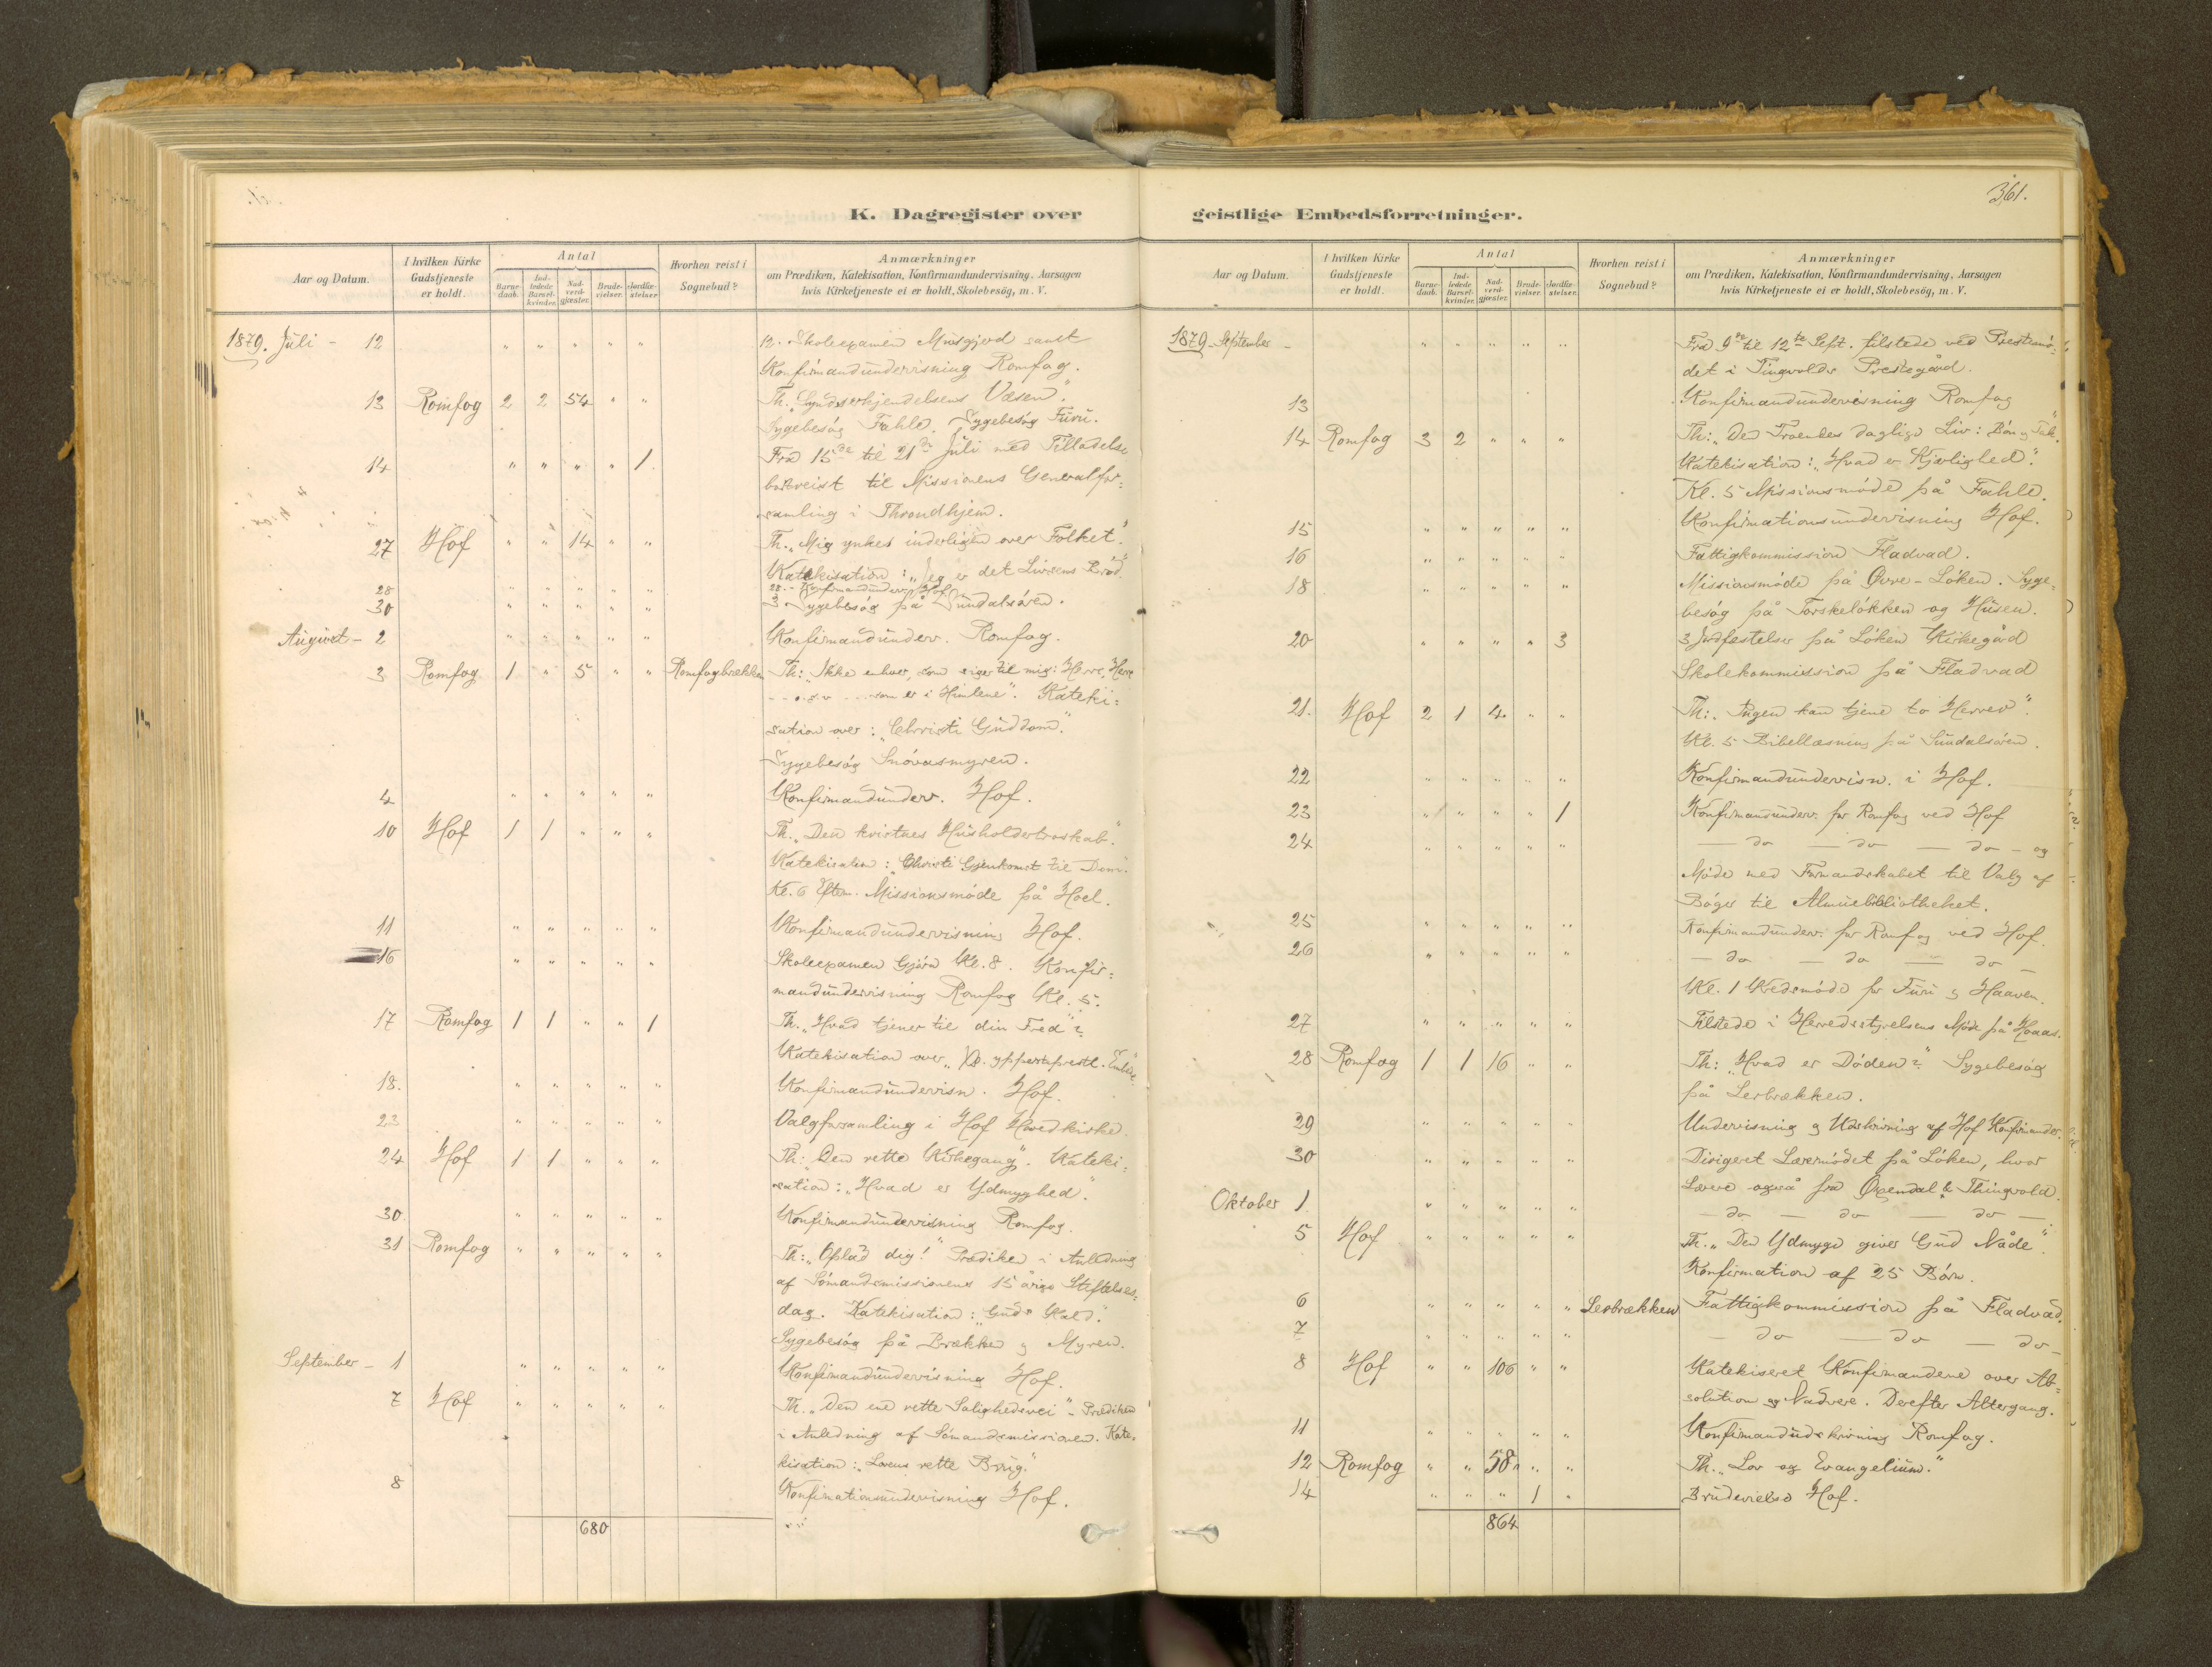 K. Dagregister over
Aar og Datum.
I hvilken Kirke Gudstjeneste er holdt.
Antal
Barne-daab.
Ind-ledede Barsel-kvinder.
Nad-verd-gjæster.
Brude-vielser.
Jordfæ-stelser.
Hvorhen reist i Sognebud?
Anmærkninger
om Prædiken, Katekisation, Konfirmandundervisning, Aarsagen
hvis Kirketjeneste ei er holdt, Skolebesög, m. V.
1879. Juli - 12 " " " " " 12. Skoleexamen Musgjerd samt
Konfirmandundervisning Romfog.
13 Romfog 2 2 54 " " Th. "Synderkjendelsens Væsen".
Sygebesög Fahle. Sygebesög Furu.
14 " " " " 1. Fra 15de til 21de Juli med Tilladelse
bortreist til Missionens Generalfor=
samling i Throndhjem.
27 Hof " " 14 " " Th. "Mig ynkes inderligen over Folket."
Katekisation: "Jeg er det Livsens Bröd."
28 " " " " " 28. - Konfirmandunderv. Hof
30 " " " " " Sygebesög på Sundalsören.
August - 2 " " " " " Konfirmandunderv. Romfog.
3 Romfog 1 " 5 " " Romfogbrækken Th: "Ikke enhver, som siger til mig: Herre, Herre
- - o.s.v. ... som er i Himlene". Kateki=
sation over: "Christi Guddom."
Sygebesög Snövasmyren.
4 " " " " " Konfirmandunderv. Hof.
10 Hof 1 1 " " " Th. "Den kristnes Husholdertroskab."
Katekisation: "Christi Gjenkomst til Dom".
Kl. 6 Eftm. Missionsmöde på Hoel.
11 " " " " " Konfirmandundervisning Hof.
16 " " " " " Skoleexamen Gjöra Kl. 8. Konfir=
mandundervisning Romfog Kl. 5.
17 Romfog 1 1 " " 1 Th. "Hvad tjener til din Fred"?
Katekisation over "Xs. ypperstepræstl. Embede"
18. " " " " " Konfirmandundervisn. Hof.
23 " " " " " Valgforsamling i Hof Hovedkirke.
24 Hof 1 1 " " " Th: "Den rette Kirkegang". Kateki=
sation: "Hvad er Ydmyghed".
30. " " " " " Konfirmandundervisning Romfog.
31 Romfog " " " " " Th: "Oplad dig!" Prædiken i Anledning
af Sömandsmissionens 15 årige Stiftelses=
dag. Katekisation: "Guds Kald."
Sygebesög på Brækken og Myren.
September - 1 " " " " " Konfirmandundervisning Hof.
7 Hof " " " " " Th. "Den ene rette Salighedsvei" - Prædiken
i Anledning af Sömandsmissionen. Kate=
kisation: "Lovens rette Brug."
8 Konfirmationsundervisning Hof.
680
361.
geistlige Embedsforretninger.
Aar og Datum.
I hvilken Kirke Gudstjeneste er holdt.
Antal
Barne-daab.
Ind-ledede Barsel-kvinder.
Nad-verd-gjæster.
Brude-vielser.
Jordfæ-stelser.
Hvorhen reist i Sognebud?
Anmærkninger
om Prædiken, Katekisation, Konfirmandundervisning, Aarsagen
hvis Kirketjeneste ei er holdt, Skolebesög, m. V.
1879 - September - " " " " " Fra 9de til 12te Sept. tilstede ved Præstemö=
det i Tingvolds Prestegård.
13 Konfirmandundervisning Romfog
14 Romfog 3 2 " " " Th: "Den Troendes daglige Liv: Bön og Tak."
Katekisation: "Hvad er Kjærlighed".
Kl. 5 Missionsmöde på Fahle.
15 " " " " " Konfirmationsundervisning Hof.
16 " " " " " Fattigkommission Fladvad.
18 " " " " " Missionsmöde på Övre-Löken. Syge=
besög på Torskelökken og Husen.
20 " " " " 3 3 Jordfæstelser på Löken Kirkegård
Skolekommission på Fladvad
21. Hof 2 1 4 " " Th: "Ingen kan tjene to Herrer".
Kl. 5 Bibellæsning på Sundalsören.
22 " " " " " Konfirmandundervisn. i Hof.
23 " " " " 1 Konfirmandunderv. for Romfog ved Hof
24 " " " " " - do - do - do - og
Möde med Formandskabet til Valg af
Böger til Almuebibliotheket.
25 " " " " " Konfirmandunderv. for Romfog ved Hof.
26 " " " " " - do - do - do -
Kl. 1 Kredsmöde for Furu og Haaven.
27 " " " " " Tilstede i Herredsstyrelsens Möde på Hoaas.
28 Romfog 1 1 16 " " Th: "Hvad er Döden"? Sygebesög
på Lesbrækken.
29 " " " " " Undervisning og Udskrivning af Hof Konfirmander.
30 " " " " " Dirigeret Læremödet på Löken, hvor
Lærere også fra Öxendal & Thingvold.
Oktober 1 " " " " " - do - do - do -
5 Hof " " " " " Th. "Den Ydmyge giver Gud Nåde".
Konfirmation af 25 Börn.
6 " " " " " Lesbrækken Fattigkommission på Fladvad.
7 " " " " " - do - do - do -
8 Hof " " 106 " " Katekiseret Konfirmanderne over Ab=
solution og Nadvere. Derefter Altergang.
11 " " " " " Konfirmandudskrivning Romfog.
12 Romfog " " 58 " " Th. "Lov og Evangelium."
14 " " " 1 " Brudevielse Hof.
864